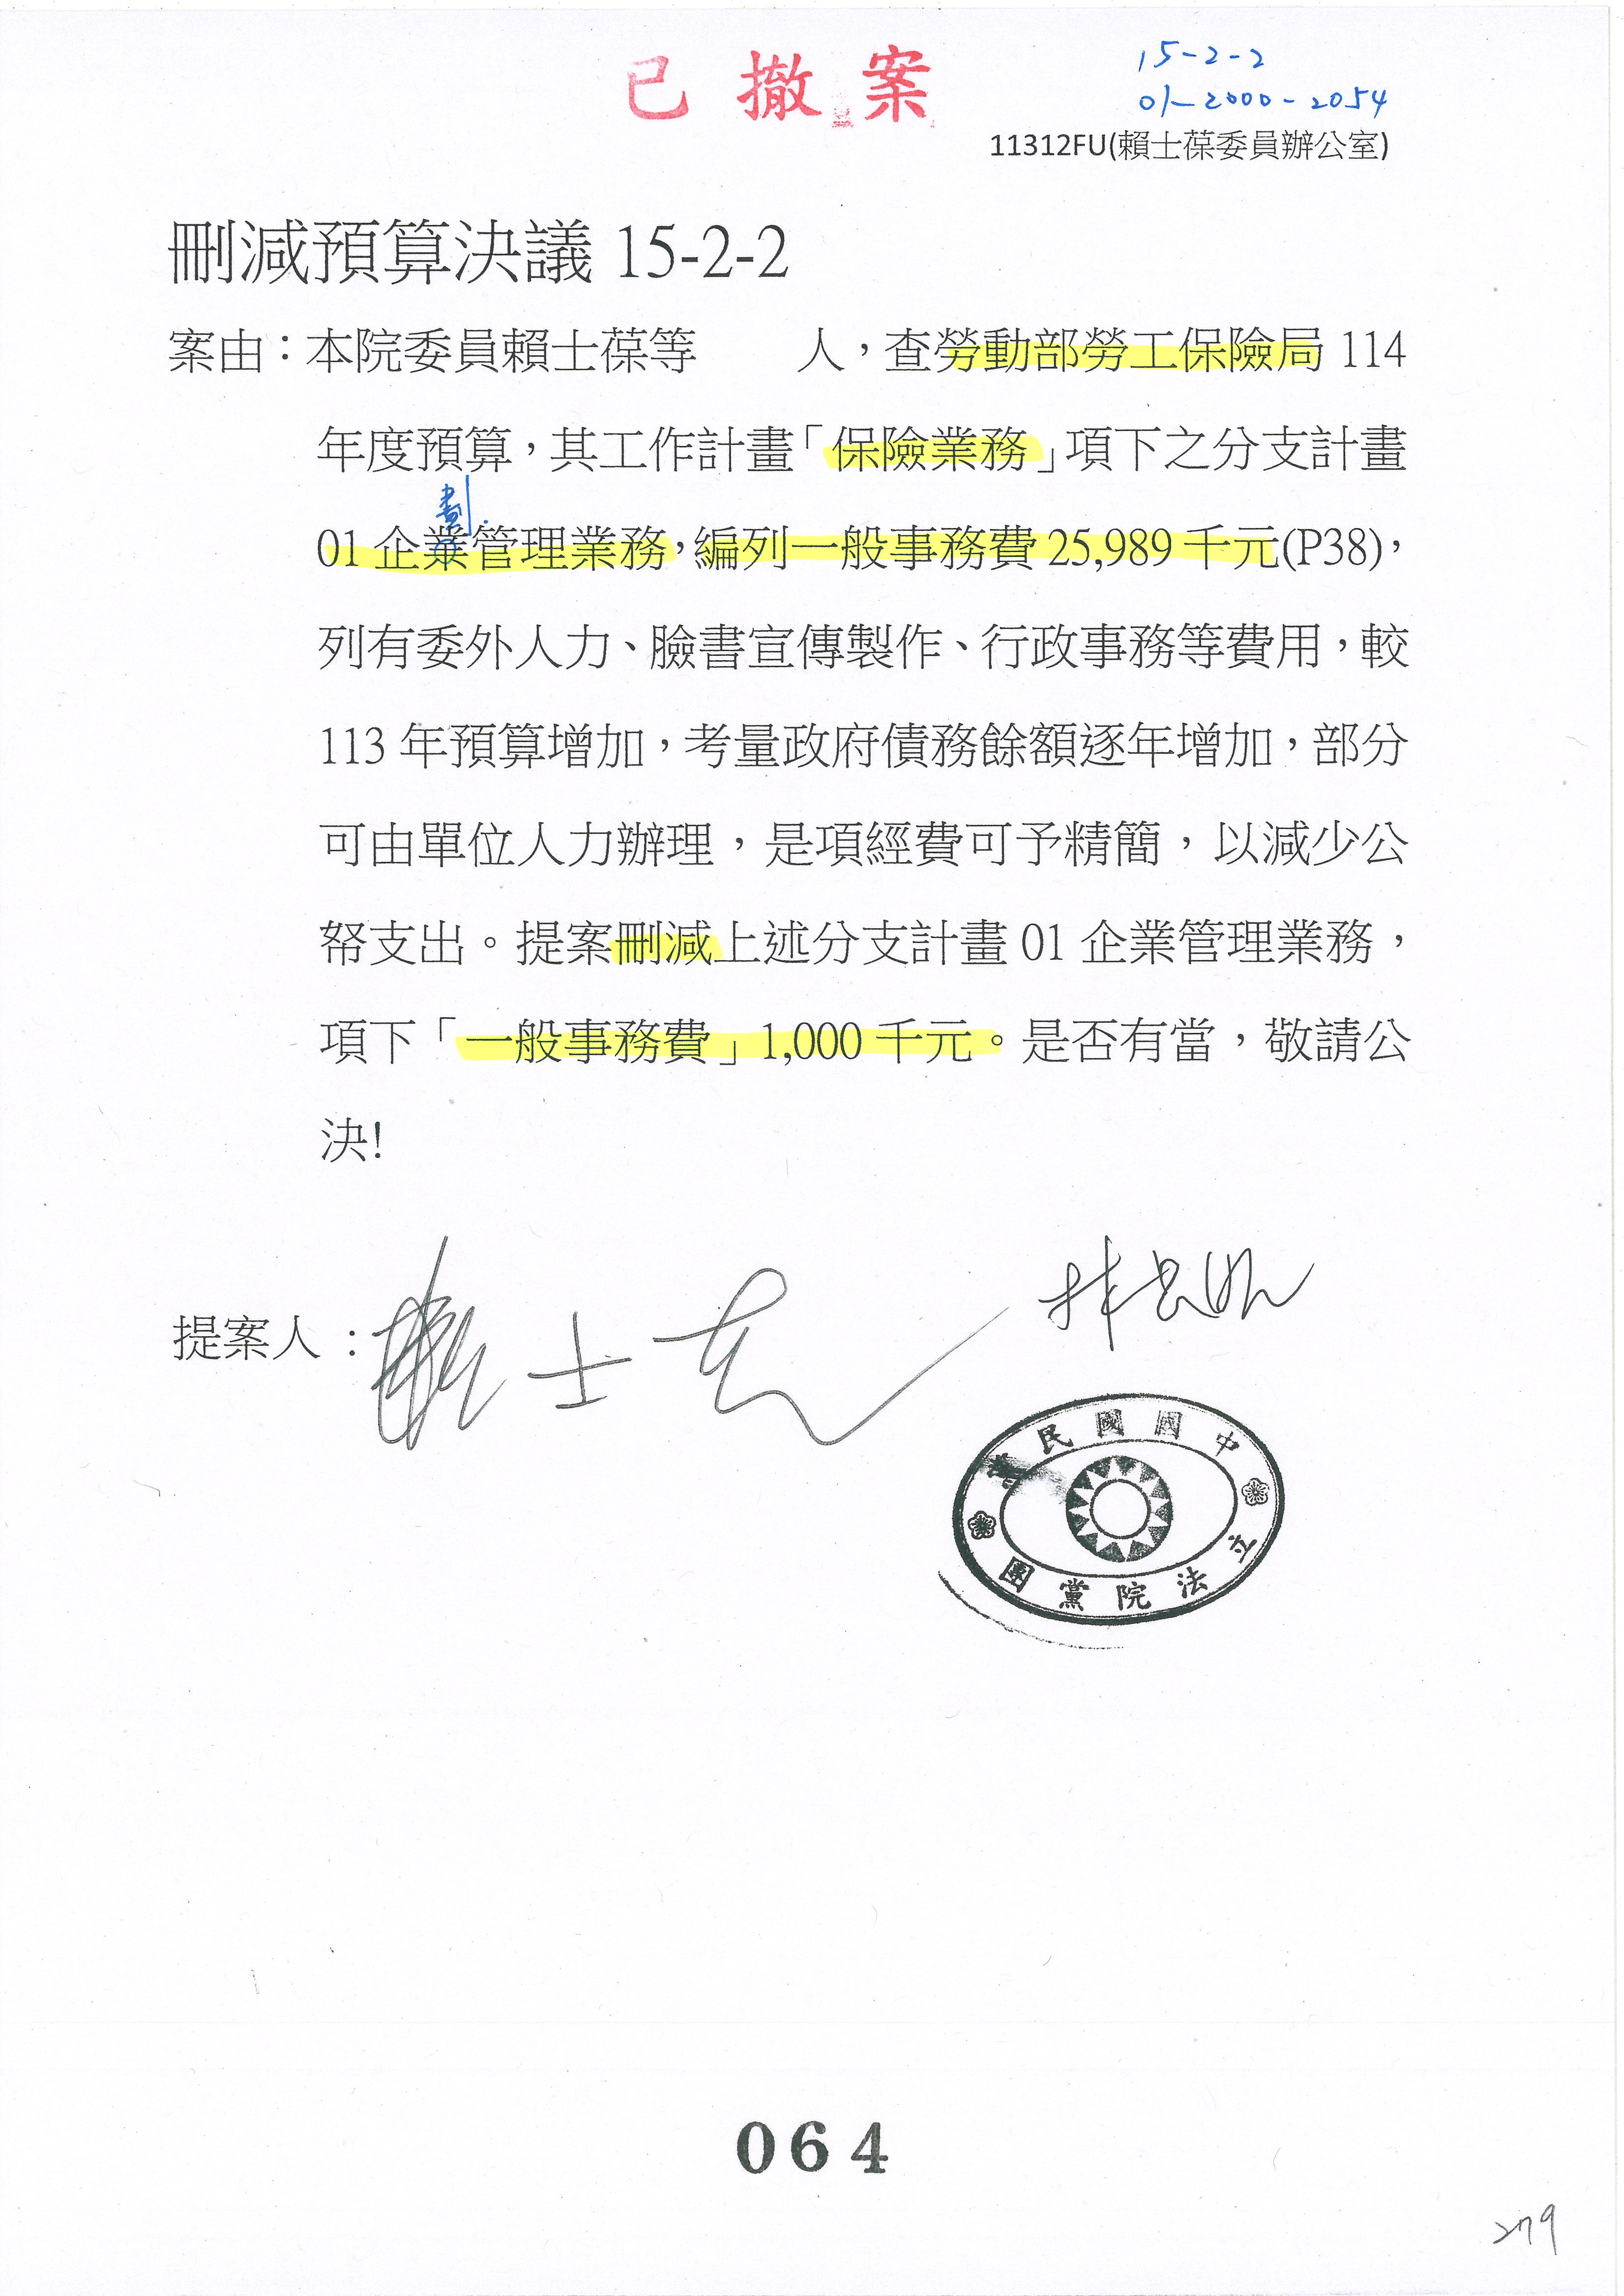 已撤案
15-2-2
01-2000-2054
11312FU(賴士葆委員辦公室)
刪減預算決議 15-2-2
案由：本院委員賴士葆等　　人，查勞動部勞工保險局 114
年度預算，其工作計畫「保險業務」項下之分支計畫
劃
01 企業管理業務，編列一般事務費 25,989 千元(P38)，
列有委外人力、臉書宣傳製作、行政事務等費用，較
113 年預算增加，考量政府債務餘額逐年增加，部分
可由單位人力辦理，是項經費可予精簡，以減少公
帑支出。提案刪減上述分支計畫 01 企業管理業務，
項下「一般事務費」1,000 千元。是否有當，敬請公
決!
提案人：賴士葆
中國國民黨
立法院黨團
064
279